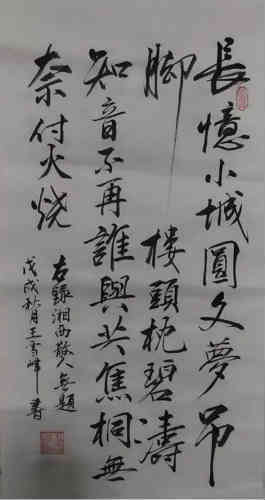 長憶小城圓文夢吊
脚樓頭枕碧濤
知音不再誰與共焦桐無
奈付火燒
右錄湘西散人無題
戊戌秋月王雪峰書